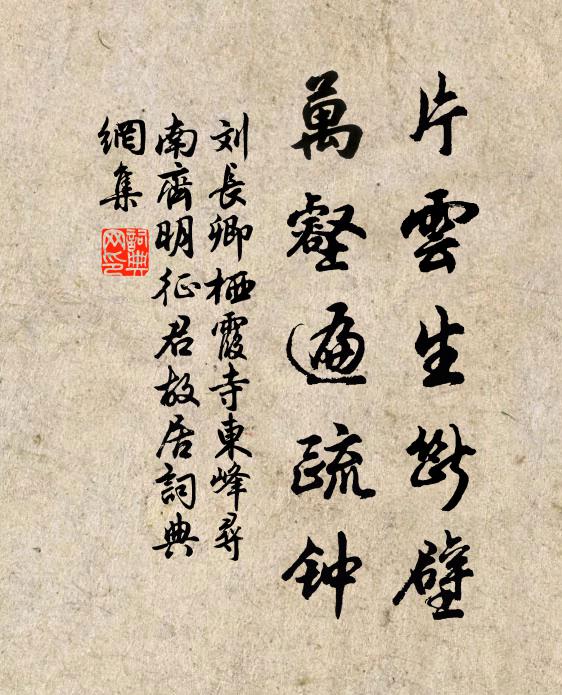 片雲生斷壁
萬壑遍疏钟
刘長卿栖霞寺東峰尋
南齊明征君故居詞典
網集
詞典
网印